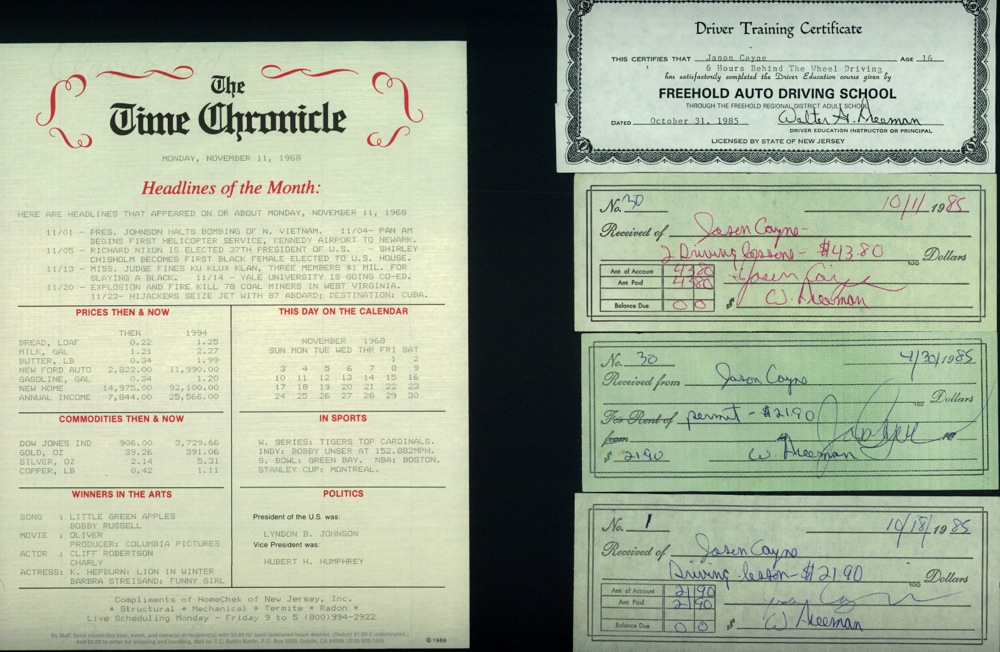 The
Time Chronicle
MONDAY, NOVEMBER 11, 1968
Headlines of the Month:
HERE ARE HEADLINES THAT APPEARED ON OR ABOUT MONDAY, NOVEMBER 11, 1968
11/01 - PRES. JOHNSON HALTS BOMBING OF N. VIETNAM. 11/04- PAN AM
BEGINS FIRST HELICOPTER SERVICE, KENNEDY AIRPORT TO NEWARK.
11/05 - RICHARD NIXON IS ELECTED 37TH PRESIDENT OF U.S. - SHIRLEY
CHISHOLM BECOMES FIRST BLACK FEMALE ELECTED TO U.S. HOUSE.
11/13 - MISS. JUDGE FINES KU KLUX KLAN, THREE MEMBERS $1 MIL. FOR
SLAYING A BLACK. 11/14 - YALE UNIVERSITY IS GOING CO-ED.
11/20 - EXPLOSION AND FIRE KILL 78 COAL MINERS IN WEST VIRGINIA.
11/23- HIJACKERS SEIZE JET WITH 87 ABOARD; DESTINATION: CUBA.
PRICES THEN & NOW
THEN 1994
BREAD, LOAF 0.22 1.25
MILK, GAL 1.21 2.27
BUTTER, LB 0.34 1.99
NEW FORD AUTO 2,822.00 11,990.00
GASOLINE, GAL 0.34 1.20
NEW HOME 14,975.00 92,100.00
ANNUAL INCOME 7,844.00 25,566.00
THIS DAY ON THE CALENDAR
NOVEMBER 1968
SUN MON TUE WED THR FRI SAT
1 2
3 4 5 6 7 8 9
10 11 12 13 14 15 16
17 18 19 20 21 22 23
24 25 26 27 28 29 30
COMMODITIES THEN & NOW
DOW JONES IND 906.00 3,729.66
GOLD, OZ 39.26 391.06
SILVER, OZ 2.14 5.31
COPPER, LB 0.42 1.11
IN SPORTS
W. SERIES: TIGERS TOP CARDINALS.
INDY: BOBBY UNSER AT 152.882MPH.
S. BOWL: GREEN BAY. NBA: BOSTON.
STANLEY CUP: MONTREAL.
WINNERS IN THE ARTS
SONG : LITTLE GREEN APPLES
BOBBY RUSSELL
MOVIE : OLIVER
PRODUCER: COLUMBIA PICTURES
ACTOR : CLIFF ROBERTSON
CHARLY
ACTRESS: K. HEPBURN: LION IN WINTER
BARBRA STREISAND: FUNNY GIRL
POLITICS
President of the U.S. was:
LYNDON B. JOHNSON
Vice President was:
HUBERT H. HUMPHREY
Compliments of HomeChek of New Jersey, Inc.
* Structural * Mechanical * Termite * Radon *
Live Scheduling Monday - Friday 9 to 5 (800)994-2922
© 1989
Driver Training Certificate
THIS CERTIFIES THAT Jason Cayne AGE 16
6 Hours Behind The Wheel Driving
has satisfactorily completed the Driver Education course given by
FREEHOLD AUTO DRIVING SCHOOL
THROUGH THE FREEHOLD REGIONAL DISTRICT ADULT SCHOOL
DATED October 31, 1985 Walter A. Neeman
DRIVER EDUCATION INSTRUCTOR OR PRINCIPAL
LICENSED BY STATE OF NEW JERSEY
No. 30 10/11 1985
Received of Jason Cayne
2 Driving lessons - $43.80 100 Dollars
Amt of Account 43 80
Amt Paid 43 80
Balance Due 0 0 $ W. Neeman
No. 30 4/30/1985
Received from Jason Cayne
100 Dollars
For Rent of permit - $21.90
from to 19
$ 21.90 W. Neeman
No. 1 10/18/1985
Received of Jason Cayne
Driving lesson - $21.90 100 Dollars
Amt of Account 21 90
Amt Paid 21 90
Balance Due 0 0 $ W. Neeman